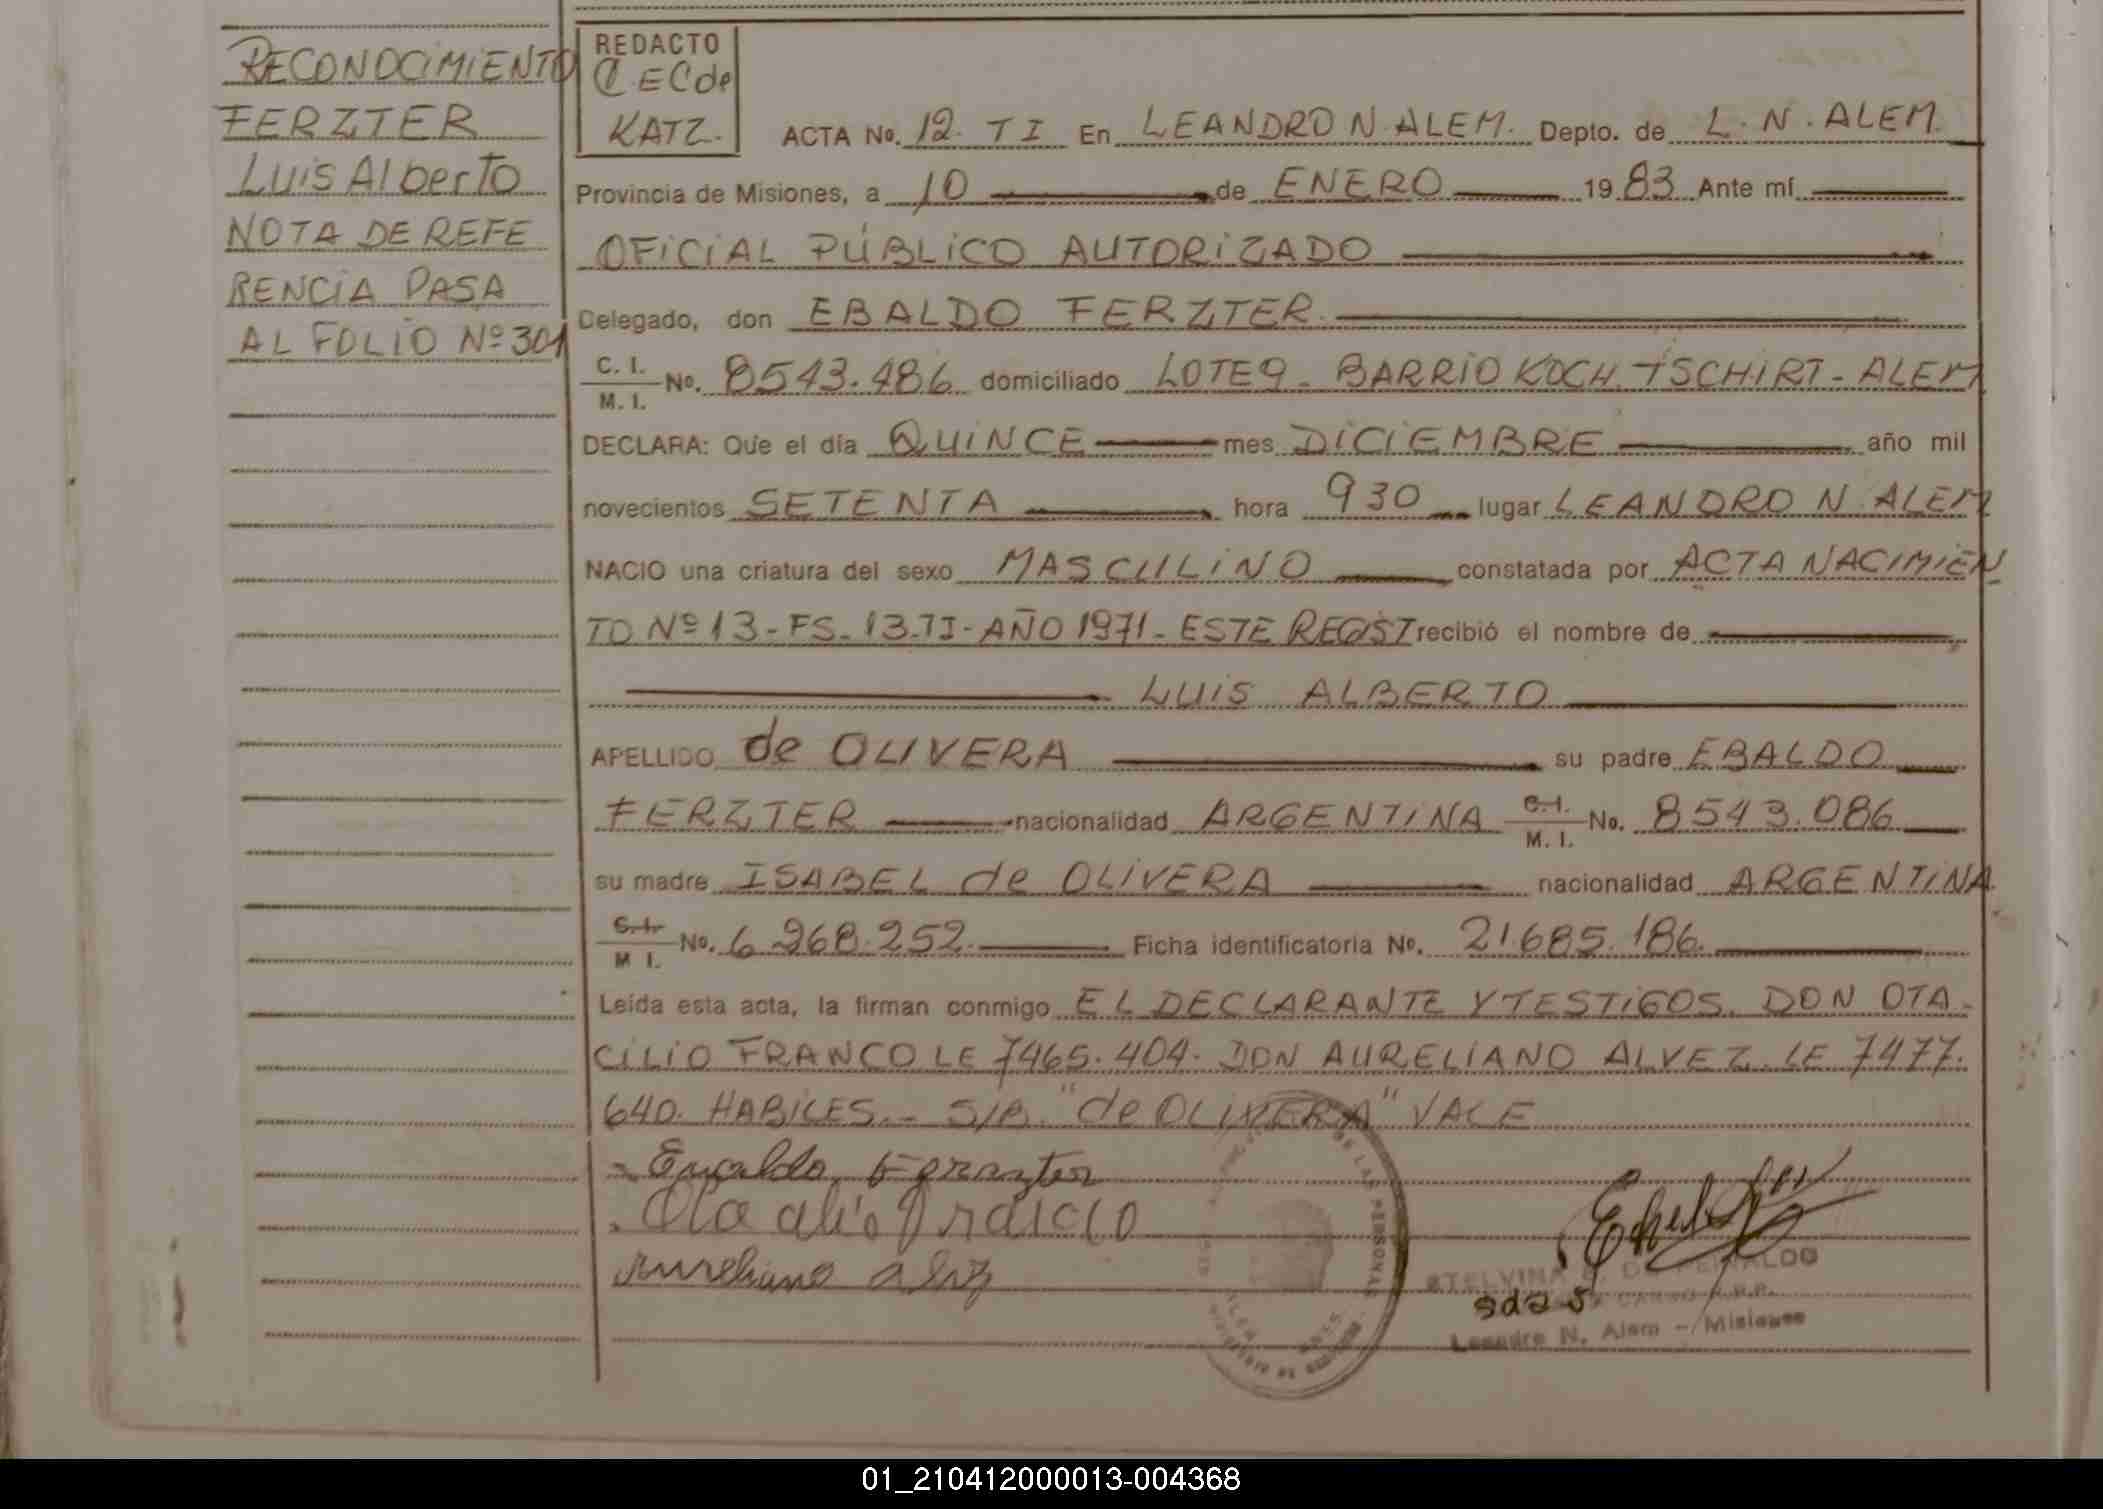 RECONOCIMIENTO
FERZTER
Luis Alberto
NOTA DE REFE
RENCIA PASA
AL FOLIO Nº 301
REDACTO
C EC de
KATZ.
ACTA No. 12. TI En LEANDRO N. ALEM. Depto. de L. N. ALEM.
Provincia de Misiones, a 10 de ENERO 1983 Ante mí
OFICIAL PÚBLICO AUTORIZADO
Delegado, don EBALDO FERZTER.
C. I.
M. I. No. 8543.486 domiciliado LOTE 9 - BARRIO KOCH TSCHIRT - ALEM
DECLARA: Que el día QUINCE mes DICIEMBRE año mil
novecientos SETENTA hora 930 lugar LEANDRO N. ALEM
NACIO una criatura del sexo MASCULINO constatada por ACTA NACIMIEN
TO Nº 13 - FS - 13 - TI - AÑO 1971 - ESTE REGIST recibió el nombre de
LUIS ALBERTO
APELLIDO de OLIVERA su padre EBALDO
FERZTER nacionalidad ARGENTINA C.I.
M. I. No. 8543.086
su madre ISABEL de OLIVERA nacionalidad ARGENTINA
C.I.
M I. No. 6.268.252. Ficha identificatoria No. 21685.186.
Leída esta acta, la firman conmigo EL DECLARANTE Y TESTIGOS. DON OTA
CILIO FRANCO LE 7465.404. DON AURELIANO ALVEZ LE 7477.
640. HABILES. - S/B. "de OLIVERA" VALE
DE LAS PERSONAS
Leandro N. Alem - Misiones
01_210412000013-004368